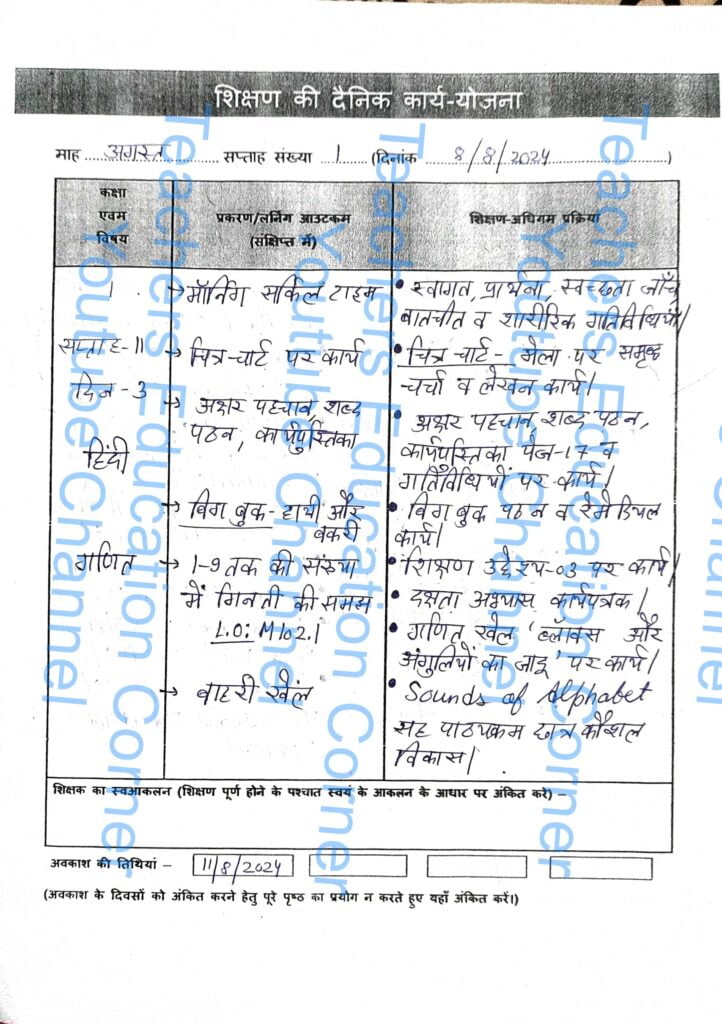 शिक्षण की दैनिक कार्य-योजना
माह ..... अगस्त ..... सप्ताह संख्या ..1.. (दिनांक ..... 8/8/2024 .....)
कक्षा
एवम
विषय
प्रकरण/लर्निंग आउटकम
(संक्षिप्त में)
शिक्षण-अधिगम प्रक्रिया
1
सप्ताह-11
दिन-3
हिंदी
गणित
→ मॉर्निंग सर्किल टाइम
→ चित्र-चार्ट पर कार्य
→ अक्षर पहचान, शब्द
पठन, कार्यपुस्तिका
→ बिग बुक- हाथी और
बकरी
→ 1-9 तक की संख्या
में गिनती की समझ
L.O: M102.1
→ बाहरी खेल
• स्वागत, प्रार्थना, स्वच्छता जाँच,
बातचीत व शारीरिक गतिविधियाँ।
• चित्र चार्ट- मेला पर समूह
चर्चा व लेखन कार्य।
• अक्षर पहचान, शब्द पठन,
कार्यपुस्तिका पेज-17 व
गतिविधियों पर कार्य।
• बिग बुक पठन व रेमेडियल
कार्य।
• शिक्षण उद्देश्य-03 पर कार्य।
• दक्षता अभ्यास कार्यपत्रक।
• गणित खेल 'ब्लॉक्स और
अंगुलियों का जादू' पर कार्य।
• Sounds of Alphabet
सह पाठ्यक्रम छात्र कौशल
विकास।
शिक्षक का स्वआकलन (शिक्षण पूर्ण होने के पश्चात स्वयं के आकलन के आधार पर अंकित करें) –
अवकाश की तिथियां – 11/8/2024
(अवकाश के दिवसों को अंकित करने हेतु पूरे पृष्ठ का प्रयोग न करते हुए यहाँ अंकित करें।)
Teachers Education Corner
Youtube Channel
Teachers Education Corner
Youtube Channel
Teachers Education Corner
Youtube Channel